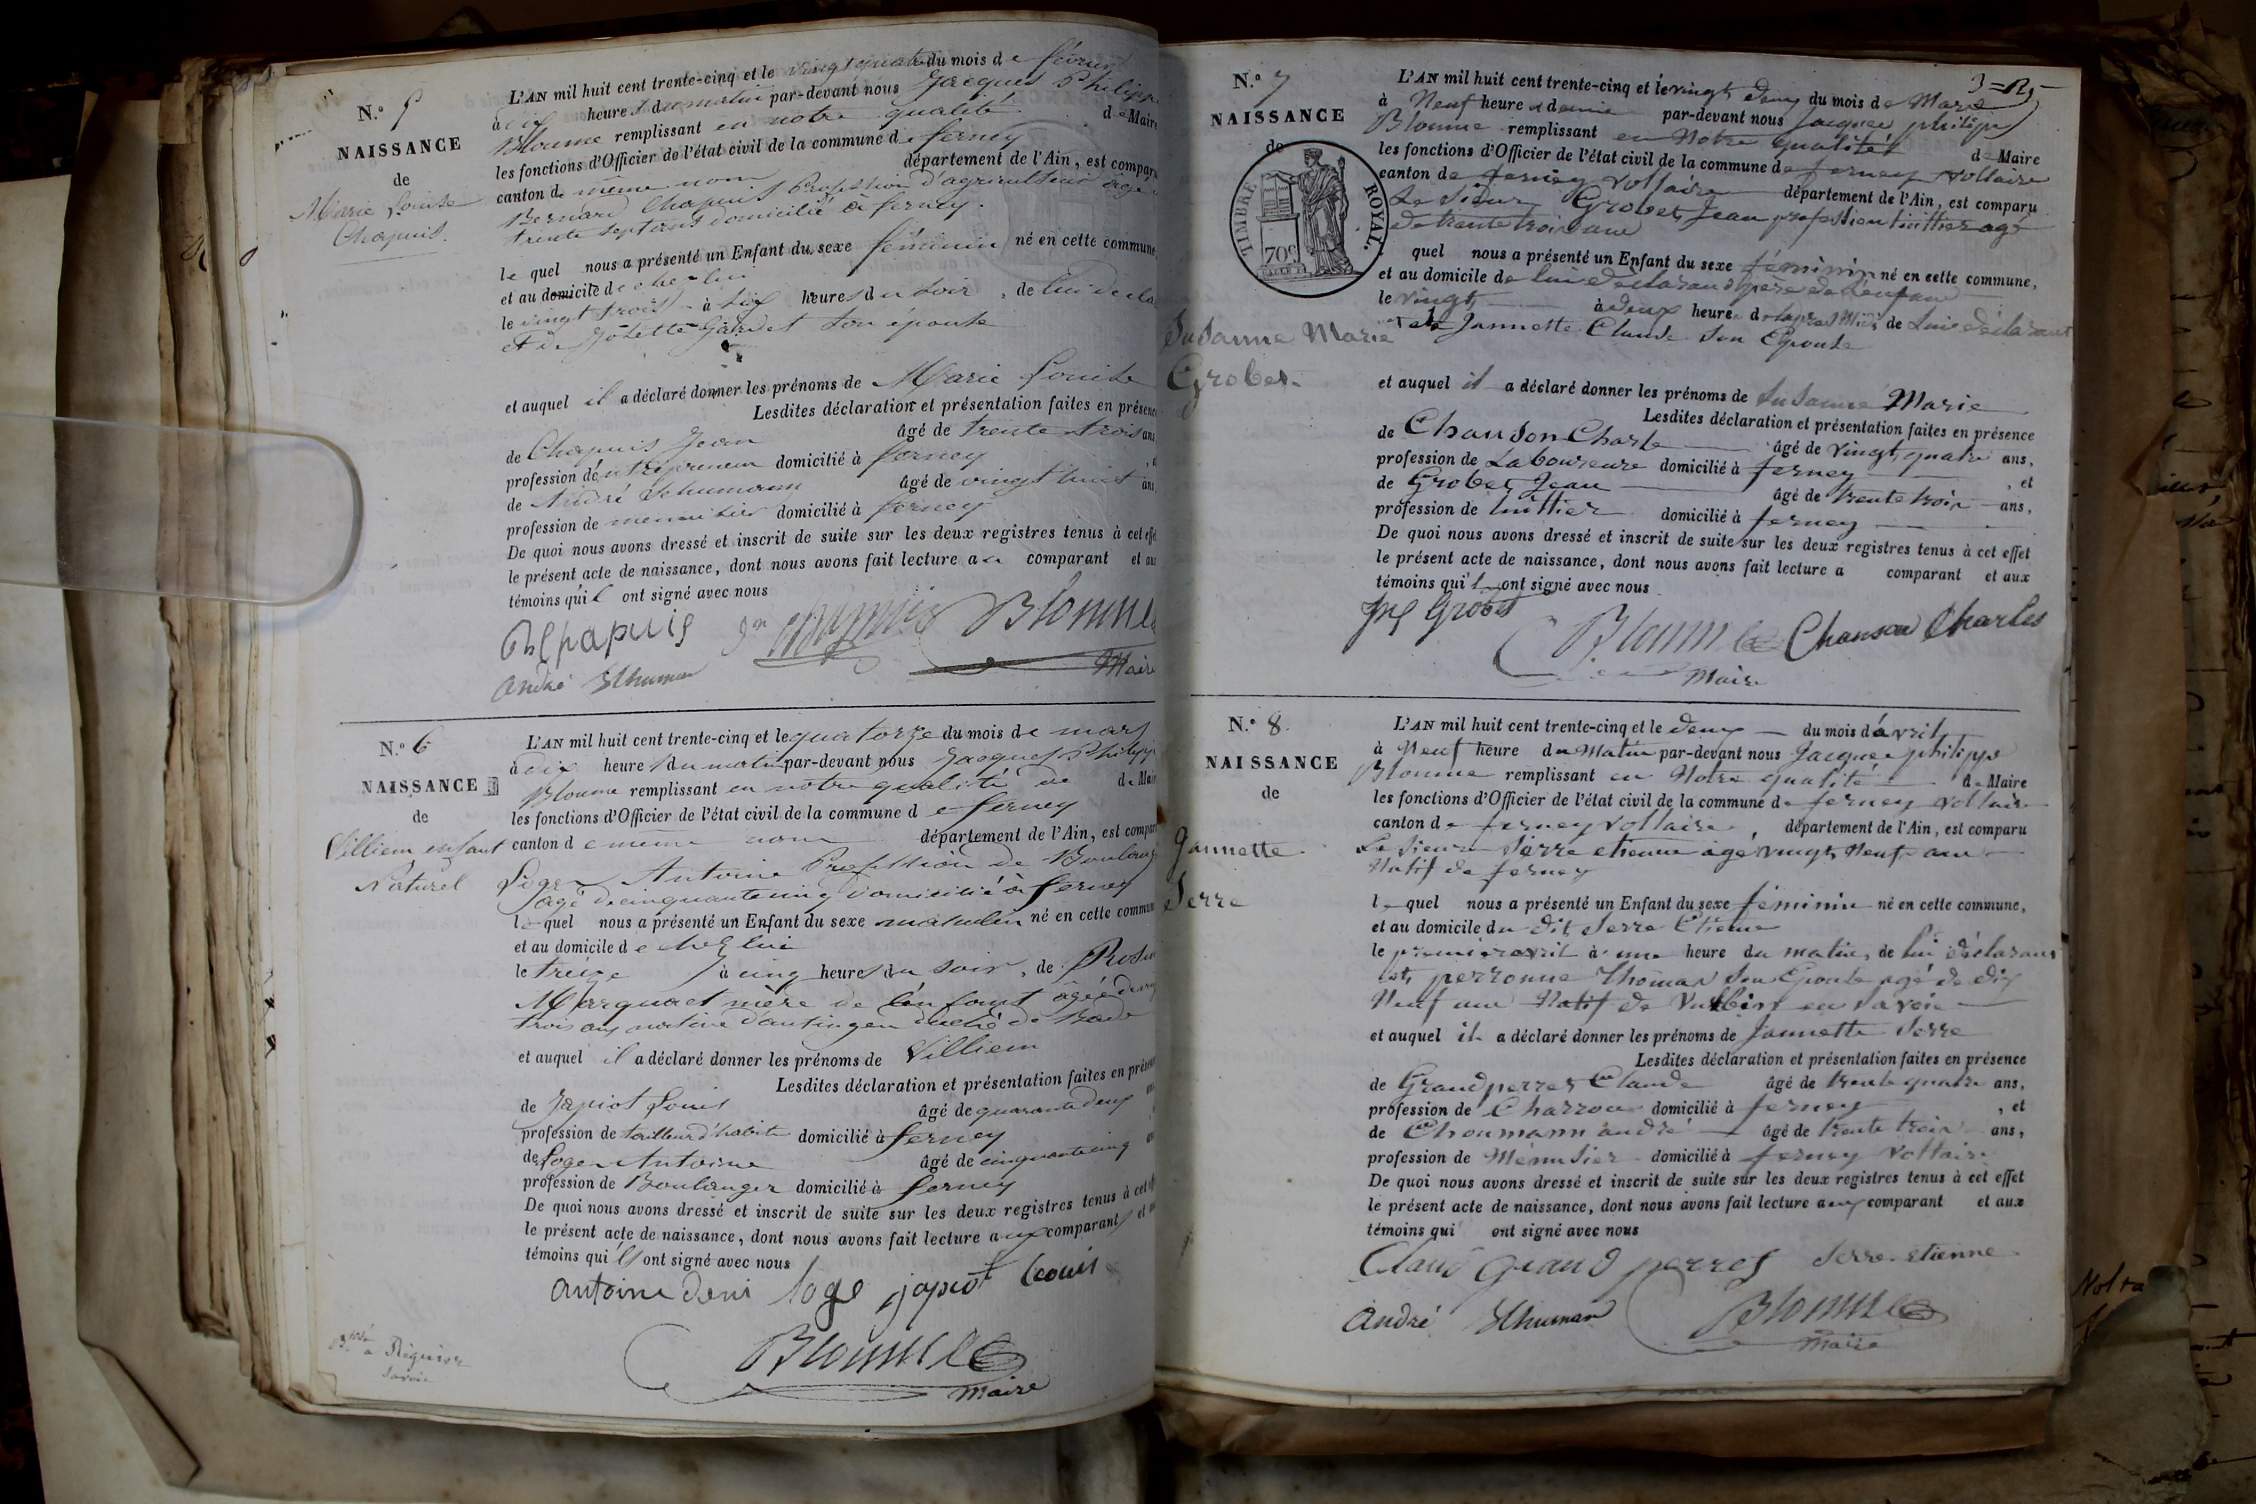 N.o 5
NAISSANCE
de
Marie Louise
Chapuis.
L'AN mil huit cent trente-cinq et le vingt quatre du mois de février
à dix heures du matin par-devant nous Jacques Philippe
Bloume remplissant en notre qualité de Maire
les fonctions d'Officier de l'état civil de la commune de ferney
canton de même nom département de l'Ain, est comparu
Bernard Chapuis Profession d'agriculteur âgé
trente sept ans domicilié à ferney.
le quel nous a présenté un Enfant du sexe féminin né en cette commune
et au domicile de chez lui
le vingt trois à six heures du soir, de lui decla
et de Josette Gardet son épouse
et auquel il a déclaré donner les prénoms de Marie Louise
Lesdites déclaration et présentation faites en présence
de Chapuis Jean âgé de trente trois ans
profession d'entrepreneur domicilié à ferney
de André Schumann âgé de vingt huit ans
profession de menuisier domicilié à ferney
De quoi nous avons dressé et inscrit de suite sur les deux registres tenus à cet effet
le présent acte de naissance, dont nous avons fait lecture au comparant et aux
témoins qu'il ont signé avec nous
Chapuis Jn Chapuis Bloume
andré Schuman Maire
N.o 6
NAISSANCE
de
Villiem enfant
Naturel
L'AN mil huit cent trente-cinq et le quatorze du mois de mars
à dix heures du matin par-devant nous Jacques Philippe
Bloume remplissant en notre qualité de de Maire
les fonctions d'Officier de l'état civil de la commune de ferney
canton de même nom département de l'Ain, est comparu
Loge Antoine Profession de Boulanger
âgé de cinquante cinq domicilié à ferney
le quel nous a présenté un Enfant du sexe masculin né en cette commune
et au domicile de chez lui
le treize à cinq heures du soir, de Rosine
Marquaet mère de l'enfant âgée de vingt
trois ans native d'autingen duché de Bade
et auquel il a déclaré donner les prénoms de Villiem
Lesdites déclaration et présentation faites en présence
de Japiot Louis âgé de quarante deux
profession de tailleur d'habits domicilié à ferney
de Loge Antoine âgé de cinquante cinq
profession de Boulanger domicilié à ferney
De quoi nous avons dressé et inscrit de suite sur les deux registres tenus à cet effet
le présent acte de naissance, dont nous avons fait lecture aux comparant et aux
témoins qui ils ont signé avec nous
antoine deni loge japiot louis
Bloume
maire
à Régnier
Savoie
N.o 7
NAISSANCE
de
TIMBRE ROYAL.
70c
Susanne Marie
Grobet.
L'AN mil huit cent trente-cinq et le vingt deux du mois de Mars
à Neuf heure et demie par-devant nous Jacques philippe
Bloume remplissant en Notre qualité de Maire
les fonctions d'Officier de l'état civil de la commune de ferney voltaire
canton de ferney voltaire département de l'Ain, est comparu
Le Sieur Grobet Jean profession luittier agé
de trente trois ans
quel nous a présenté un Enfant du sexe féminin né en cette commune,
et au domicile de lui déclarant père de l'enfant
le vingt à deux heure de l'apres Midi de Lui déclarant
et de Jannette Claude son Epouse
et auquel il a déclaré donner les prénoms de Susanne Marie
Lesdites déclaration et présentation faites en présence
de Chanson Charle âgé de vingt quatre ans,
profession de Laboureure domicilié à ferney, et
de Grobet Jean âgé de trente trois ans,
profession de luittier domicilié à ferney
De quoi nous avons dressé et inscrit de suite sur les deux registres tenus à cet effet
le présent acte de naissance, dont nous avons fait lecture a comparant et aux
témoins qui'l ont signé avec nous
Grobet Bloume Chanson Charles
Maire
N.o 8.
NAISSANCE
de
Jannette
Serre
L'AN mil huit cent trente-cinq et le deux du mois d'avril
à Neuf heure du Matin par-devant nous Jacques philippe
Bloume remplissant en Notre qualité de Maire
les fonctions d'Officier de l'état civil de la commune de ferney voltaire
canton de ferney voltaire, département de l'Ain, est comparu
Le Sieur Serre etienne agé vingt Neuf ans
Natif de ferney
le quel nous a présenté un Enfant du sexe féminin né en cette commune,
et au domicile du dit Serre Etienne
le premier avril à une heure du matin, de lui déclarant
et perronne Thomas son Epouse agé de dix
Neuf ans Natif de Vulbens en Savoie
et auquel il a déclaré donner les prénoms de Jannette Serre
Lesdites déclaration et présentation faites en présence
de Grandperret Claude âgé de trente quatre ans,
profession de Charron domicilié à ferney, et
de Choumann andré âgé de trente trois ans,
profession de Menusier domicilié à ferney voltaire
De quoi nous avons dressé et inscrit de suite sur les deux registres tenus à cet effet
le présent acte de naissance, dont nous avons fait lecture aux comparant et aux
témoins qui ont signé avec nous
Claud Grand perret Serre etienne
André Schuman Bloume
Maire